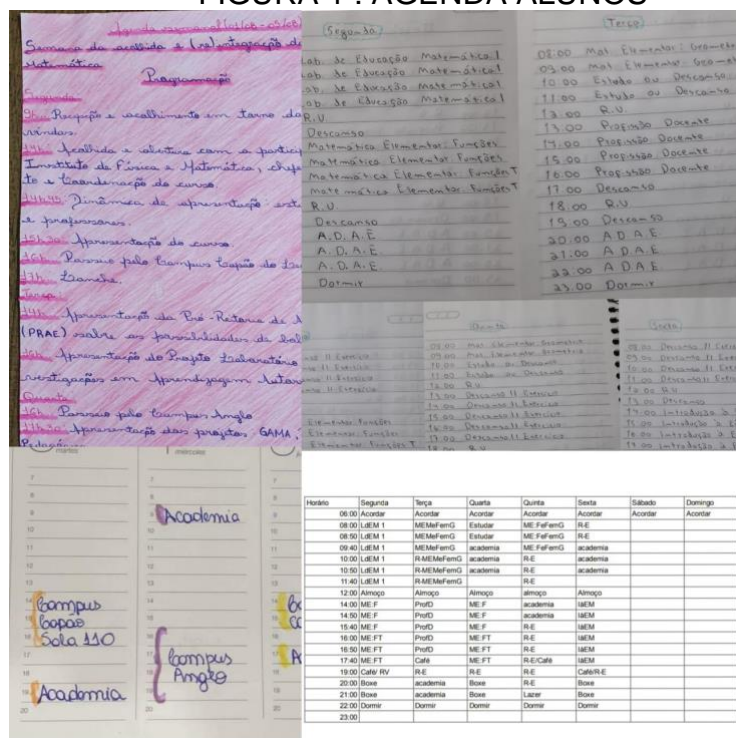 FIGURA 1 : AGENDA ALUNOS
Agenda semanal (01/08 - 05/08)
Semana da acolhida e (re)integração de
Matemática
Programação
Segunda
9h Recepção e acolhimento em torno do
vindas.
14h Acolhida e abertura com a partici
Instituto de Física e Matemática, chefe
to e Coordenação do curso.
14h45 Dinâmica de apresentação: est
e professores.
15h30 Apresentação do curso
16h Passeio pelo Campus Capão do Le
17h Lanche.
Terça
14h Apresentação da Pró-Reitoria de A
(PRAE) sobre as possibilidades de bol
16h Apresentação do Projeto Laboratório
nvestigações em Aprendizagem Autor
Quarta
16h Passeio pelo Campus Anglo
17h30 Apresentação dos projetos GAMA,
Pedagógic
(Segunda)
Lab. de Educação Matemática 1
Lab. de Educação Matemática 1
Lab. de Educação Matemática 1
Lab. de Educação Matemática 1
R.U
Descanso
Matemática Elementar: Funções
Matemática Elementar: Funções
Matemática Elementar: Funções T
Matemática Elementar: Funções T
R.U
Descanso
A.D.A.E
A.D.A.E
A.D.A.E
Dormir
(Terça)
08:00 Mat. Elementar: Geomet
09:00 Mat. Elementar: Geomet
10:00 Estudo ou Descanso
11:00 Estudo ou Descanso
12:00 R.U.
13:00 Profissão Docente
14:00 Profissão Docente
15:00 Profissão Docente
16:00 Profissão Docente
17:00 Descanso
18:00 R.U
19:00 Descanso
20:00 A.D.A.E
21:00 A.D.A.E
22:00 A.D.A.E
23:00 Dormir
so II Exercício
so II Exercício
so II Exercício
Elementar: Funções
Elementar: Funções
Elementar: Funções T
(Quinta)
08:00 Mat. Elementar: Geométrica
09:00 Mat. Elementar: Geométrica
10:00 Estudo ou Descanso
11:00 Estudo ou Descanso
12:00 R.U
13:00 Descanso II Exercício
14:00 Descanso II Exercício
15:00 Descanso II Exercício
16:00 Descanso II Exercício
17:00 Descanso II Exercício
18:00 R.U
(Sexta)
08:00 Descanso II Exerc
09:00 Descanso II Exerc
10:00 Descanso II Exerc
11:00 Descanso II Exerc
12:00 R.U
13:00 Descanso
14:00 Introdução à E
15:00 Introdução à E
16:00 Introdução à E
17:00 Introdução à E
martes
7
8
9
10
11
12
13
14 Campus
15 Capão
16 Sala 110
17
18
19 Academia
20
miércoles
7
8
9 Academia
10
11
12
13
14
15
16
17 Campus
18 Anglo
19
20
Horário Segunda Terça Quarta Quinta Sexta Sábado Domingo
06:00 Acordar Acordar Acordar Acordar Acordar Acordar Acordar
08:00 LdEM 1 MEMeFemG Estudar ME:FeFemG R-E
08:50 LdEM 1 MEMeFemG Estudar ME:FeFemG R-E
09:40 LdEM 1 MEMeFemG academia ME:FeFemG academia
10:00 LdEM 1 R-MEMeFemG academia R-E academia
10:50 LdEM 1 R-MEMeFemG academia R-E academia
11:40 LdEM 1 R-MEMeFemG R-E
12:00 Almoço Almoço Almoço almoço Almoço
14:00 ME:F ProfD ME:F academia IàEM
14:50 ME:F ProfD ME:F academia IàEM
15:40 ME:F ProfD ME:F R-E IàEM
16:00 ME:FT ProfD ME:FT R-E IàEM
16:50 ME:FT ProfD ME:FT R-E IàEM
17:40 ME:FT Café ME:FT R-E/Café IàEM
19:00 Café/ RV R-E R-E R-E Café/R-E
20:00 Boxe academia Boxe R-E Boxe
21:00 Boxe academia Boxe Lazer Boxe
22:00 Dormir Dormir Dormir Dormir Dormir
23:00